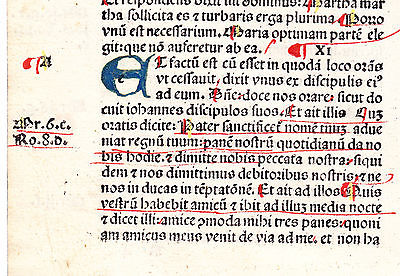 Et respondens dixit illi dominus: Martha mar
tha sollicita es z turbaris erga plurima ¶ Porro
vnū est necessarium. Maria optimam partē ele
git: que nō auferetur ab ea. ¶ XI
¶ A
ET factū est cū esset in quodā loco orās
vt cessauit, dixit vnus ex discipulis ei⁹
ad eum. Dn̄e: doce nos orare: sicut do
cuit iohannes discipulos suos. Et ait illis Cuz
oratis dicite: Pater sanctificet nomē tuuz, adue
niat regnū tuum: panē nostrū quotidianū da
nobis hodie. z dimitte nobis peccata nostra: siqui
dem z nos dimittimus debitoribus nostris: z ne
nos in ducas in tēptatonē. Et ait ad illos ¶ Quis
vestrū habebit amicū z ibit ad illuz media nocte
z dicet illi: amice cōmoda mihi tres panes: quoni
am amicus meus venit de via ad me. et non ha
Ro. 8. D.